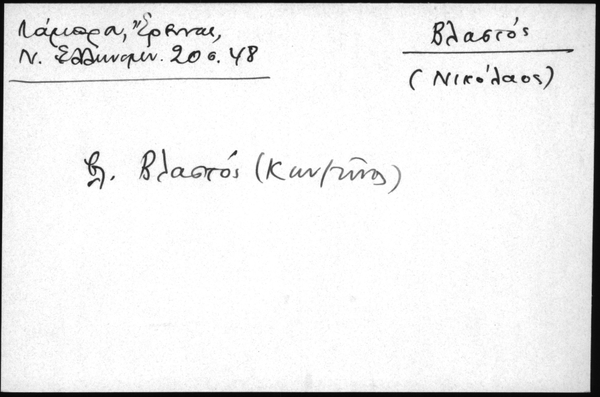 Λάμπρου, Ἔρευναι,
Ν. Ἑλληνομν. 20 σ. 48
Βλαστός
(Νικόλαος)
βλ. Βλαστός (Κων/τῖνος)